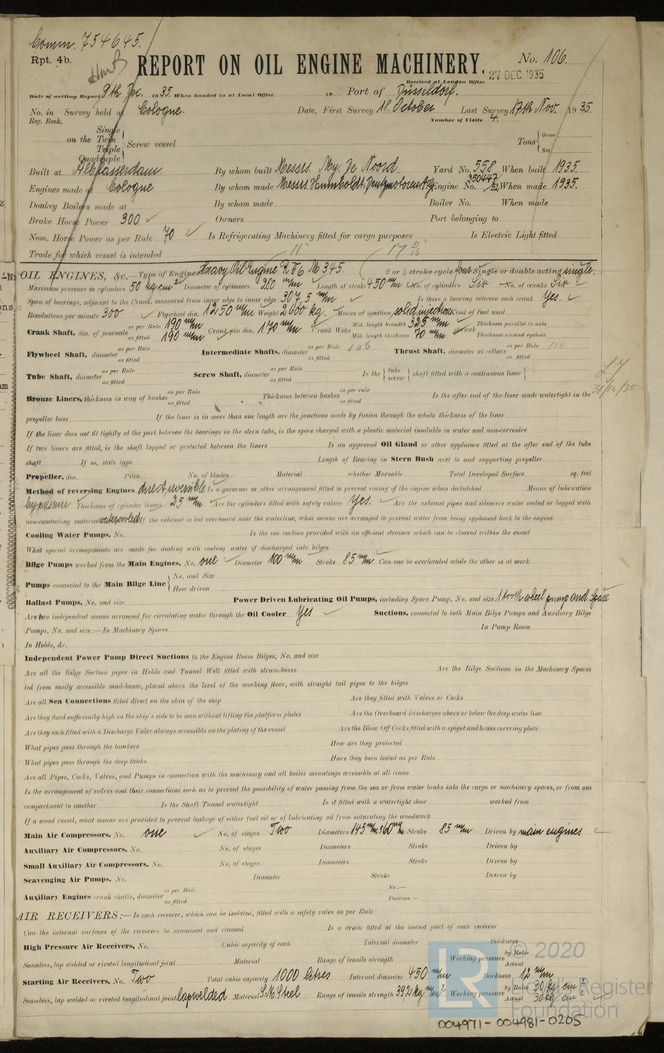 Comm. 754645.
Rpt. 4b.
REPORT ON OIL ENGINE MACHINERY.
No. 106.
Received at London Office 27 DEC 1935
Date of writing Report 9th 1935. When handed in at Local Office 19 Port of Düsseldorf.
No. in Reg. Book. Survey held at Cologne. Date, First Survey 18. October Last Survey 19 35.
Number of Visits 4.
on the Single Twin Triple Quadruple Screw vessel Tons Gross Net
Built at Alblasserdam By whom built Messrs. My. De Noord. Yard No. 558 When built 1935.
Engines made at Cologne By whom made Messrs. Humboldt-Deutzmotoren A.G. Engine No. When made 1935.
Donkey Boilers made at By whom made Boiler No. When made
Brake Horse Power 300 Owners Port belonging to
Nom. Horse Power as per Rule 70 Is Refrigerating Machinery fitted for cargo purposes Is Electric Light fitted
Trade for which vessel is intended
OIL ENGINES, &c. Type of Engine Heavy Oil Engine 2 or 4 stroke cycle four Single or double acting single.
Maximum pressure in cylinders 50 kg/cm² Diameter of cylinders 280 m/m Length of stroke 450 m/m No. of cylinders Six No. of cranks Six
Span of bearings, adjacent to the Crank, measured from inner edge to inner edge 307,5 m/m Is there a bearing between each crank Yes.
Revolutions per minute 300 Flywheel dia. 1250 m/m Weight 2600 kg. Means of ignition solid injection Kind of fuel used
Crank Shaft, dia. of journals as per Rule 190 m/m as fitted 190 m/m Crank pin dia. 170 m/m Crank Webs Mid. length breadth 325 m/m Mid. length thickness 70 m/m shrunk Thickness parallel to axis Thickness around eyehole
Flywheel Shaft, diameter as per Rule as fitted Intermediate Shafts, diameter as per Rule as fitted Thrust Shaft, diameter at collars as per Rule as fitted
Tube Shaft, diameter as per Rule as fitted Screw Shaft, diameter as per Rule as fitted Is the tube screw shaft fitted with a continuous liner
Bronze Liners, thickness in way of bushes as per Rule as fitted Thickness between bushes as per rule as fitted Is the after end of the liner made watertight in the
propeller boss If the liner is in more than one length are the junctions made by fusion through the whole thickness of the liner
If the liner does not fit tightly at the part between the bearings in the stern tube, is the space charged with a plastic material insoluble in water and non-corrosive
If two liners are fitted, is the shaft lapped or protected between the liners Is an approved Oil Gland or other appliance fitted at the after end of the tube
shaft If so, state type Length of Bearing in Stern Bush next to and supporting propeller
Propeller, dia. Pitch No. of blades Material whether Moveable Total Developed Surface sq. feet
Method of reversing Engines direct reversible Is a governor or other arrangement fitted to prevent racing of the engine when declutched Means of lubrication
by pressure Thickness of cylinder liners 25 m/m Are the cylinders fitted with safety valves Yes. Are the exhaust pipes and silencers water cooled or lagged with
non-conducting material watercooled If the exhaust is led overboard near the waterline, what means are arranged to prevent water from being syphoned back to the engine
Cooling Water Pumps, No. Is the sea suction provided with an efficient strainer which can be cleared within the vessel
What special arrangements are made for dealing with cooling water if discharged into bilges
Bilge Pumps worked from the Main Engines, No. one Diameter 100 m/m Stroke 85 m/m Can one be overhauled while the other is at work
Pumps connected to the Main Bilge Line No. and Size How driven
Ballast Pumps, No. and size Power Driven Lubricating Oil Pumps, including Spare Pump, No. and size 1 tooth wheel pump and Spare
Are two independent means arranged for circulating water through the Oil Cooler Yes Suctions, connected to both Main Bilge Pumps and Auxiliary Bilge
Pumps, No. and size:—In Machinery Spaces In Pump Room
In Holds, &c.
Independent Power Pump Direct Suctions to the Engine Room Bilges, No. and size
Are all the Bilge Suction pipes in Holds and Tunnel Well fitted with strum-boxes Are the Bilge Suctions in the Machinery Spaces
led from easily accessible mud-boxes, placed above the level of the working floor, with straight tail pipes to the bilges
Are all Sea Connections fitted direct on the skin of the ship Are they fitted with Valves or Cocks
Are they fixed sufficiently high on the ship's side to be seen without lifting the platform plates Are the Overboard Discharges above or below the deep water line
Are they each fitted with a Discharge Valve always accessible on the plating of the vessel Are the Blow Off Cocks fitted with a spigot and brass covering plate
What pipes pass through the bunkers How are they protected
What pipes pass through the deep tanks Have they been tested as per Rule
Are all Pipes, Cocks, Valves, and Pumps in connection with the machinery and all boiler mountings accessible at all times
Is the arrangement of valves and their connections such as to prevent the possibility of water passing from the sea or from water tanks into the cargo or machinery spaces, or from one
compartment to another Is the Shaft Tunnel watertight Is it fitted with a watertight door worked from
If a wood vessel, what means are provided to prevent leakage of either fuel oil or of lubricating oil from saturating the woodwork
Main Air Compressors, No. one No. of stages Two Diameters 145 m/m & 60 m/m Stroke 85 m/m Driven by main engines
Auxiliary Air Compressors, No. No. of stages Diameters Stroke Driven by
Small Auxiliary Air Compressors, No. No. of stages Diameters Stroke Driven by
Scavenging Air Pumps, No. Diameter Stroke Driven by
Auxiliary Engines crank shafts, diameter as per Rule as fitted No.:— Position:—
AIR RECEIVERS:—Is each receiver, which can be isolated, fitted with a safety valve as per Rule
Can the internal surfaces of the receivers be examined and cleaned Is a drain fitted at the lowest part of each receiver
High Pressure Air Receivers, No. Cubic capacity of each Internal diameter thickness
Seamless, lap welded or riveted longitudinal joint Material Range of tensile strength Working pressure by Rules Actual
Starting Air Receivers, No. Two Total cubic capacity 1000 litres Internal diameter 450 m/m thickness 12 m/m
Seamless, lap welded or riveted longitudinal joint lapwelded Material S.M. Steel Range of tensile strength Working pressure by Rules 30 kg/cm² Actual 30 kg/cm²
© 2020
Lloyd's Register
Foundation
004971-004981-0205